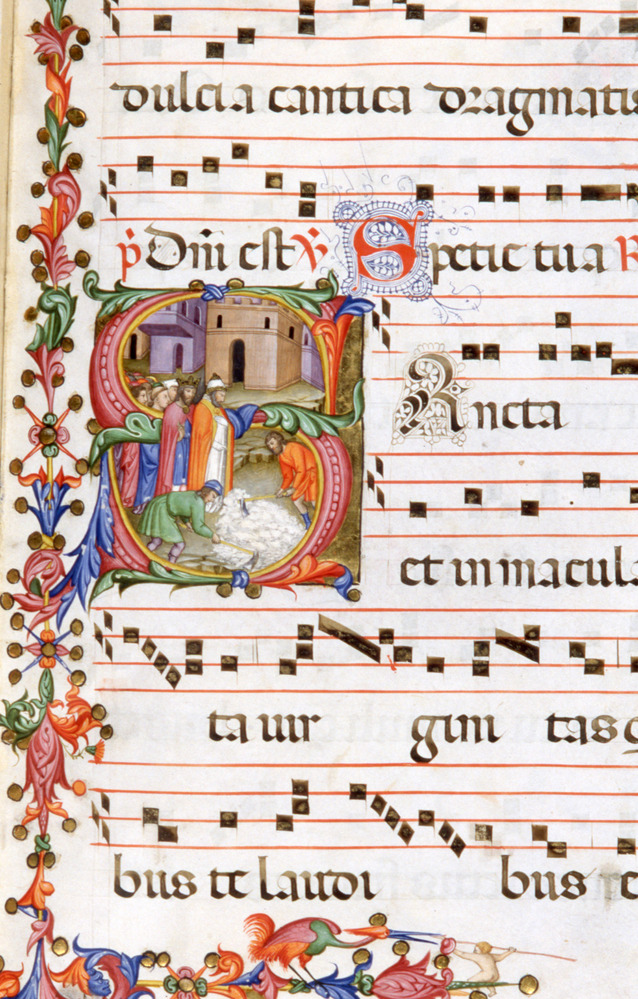 dulcia cantica dragmatis
p̄ Dn̄i est ꝟ Spetie tua R
SAncta
et inmacula
ta uir gini tas q
bus te laudi bus re